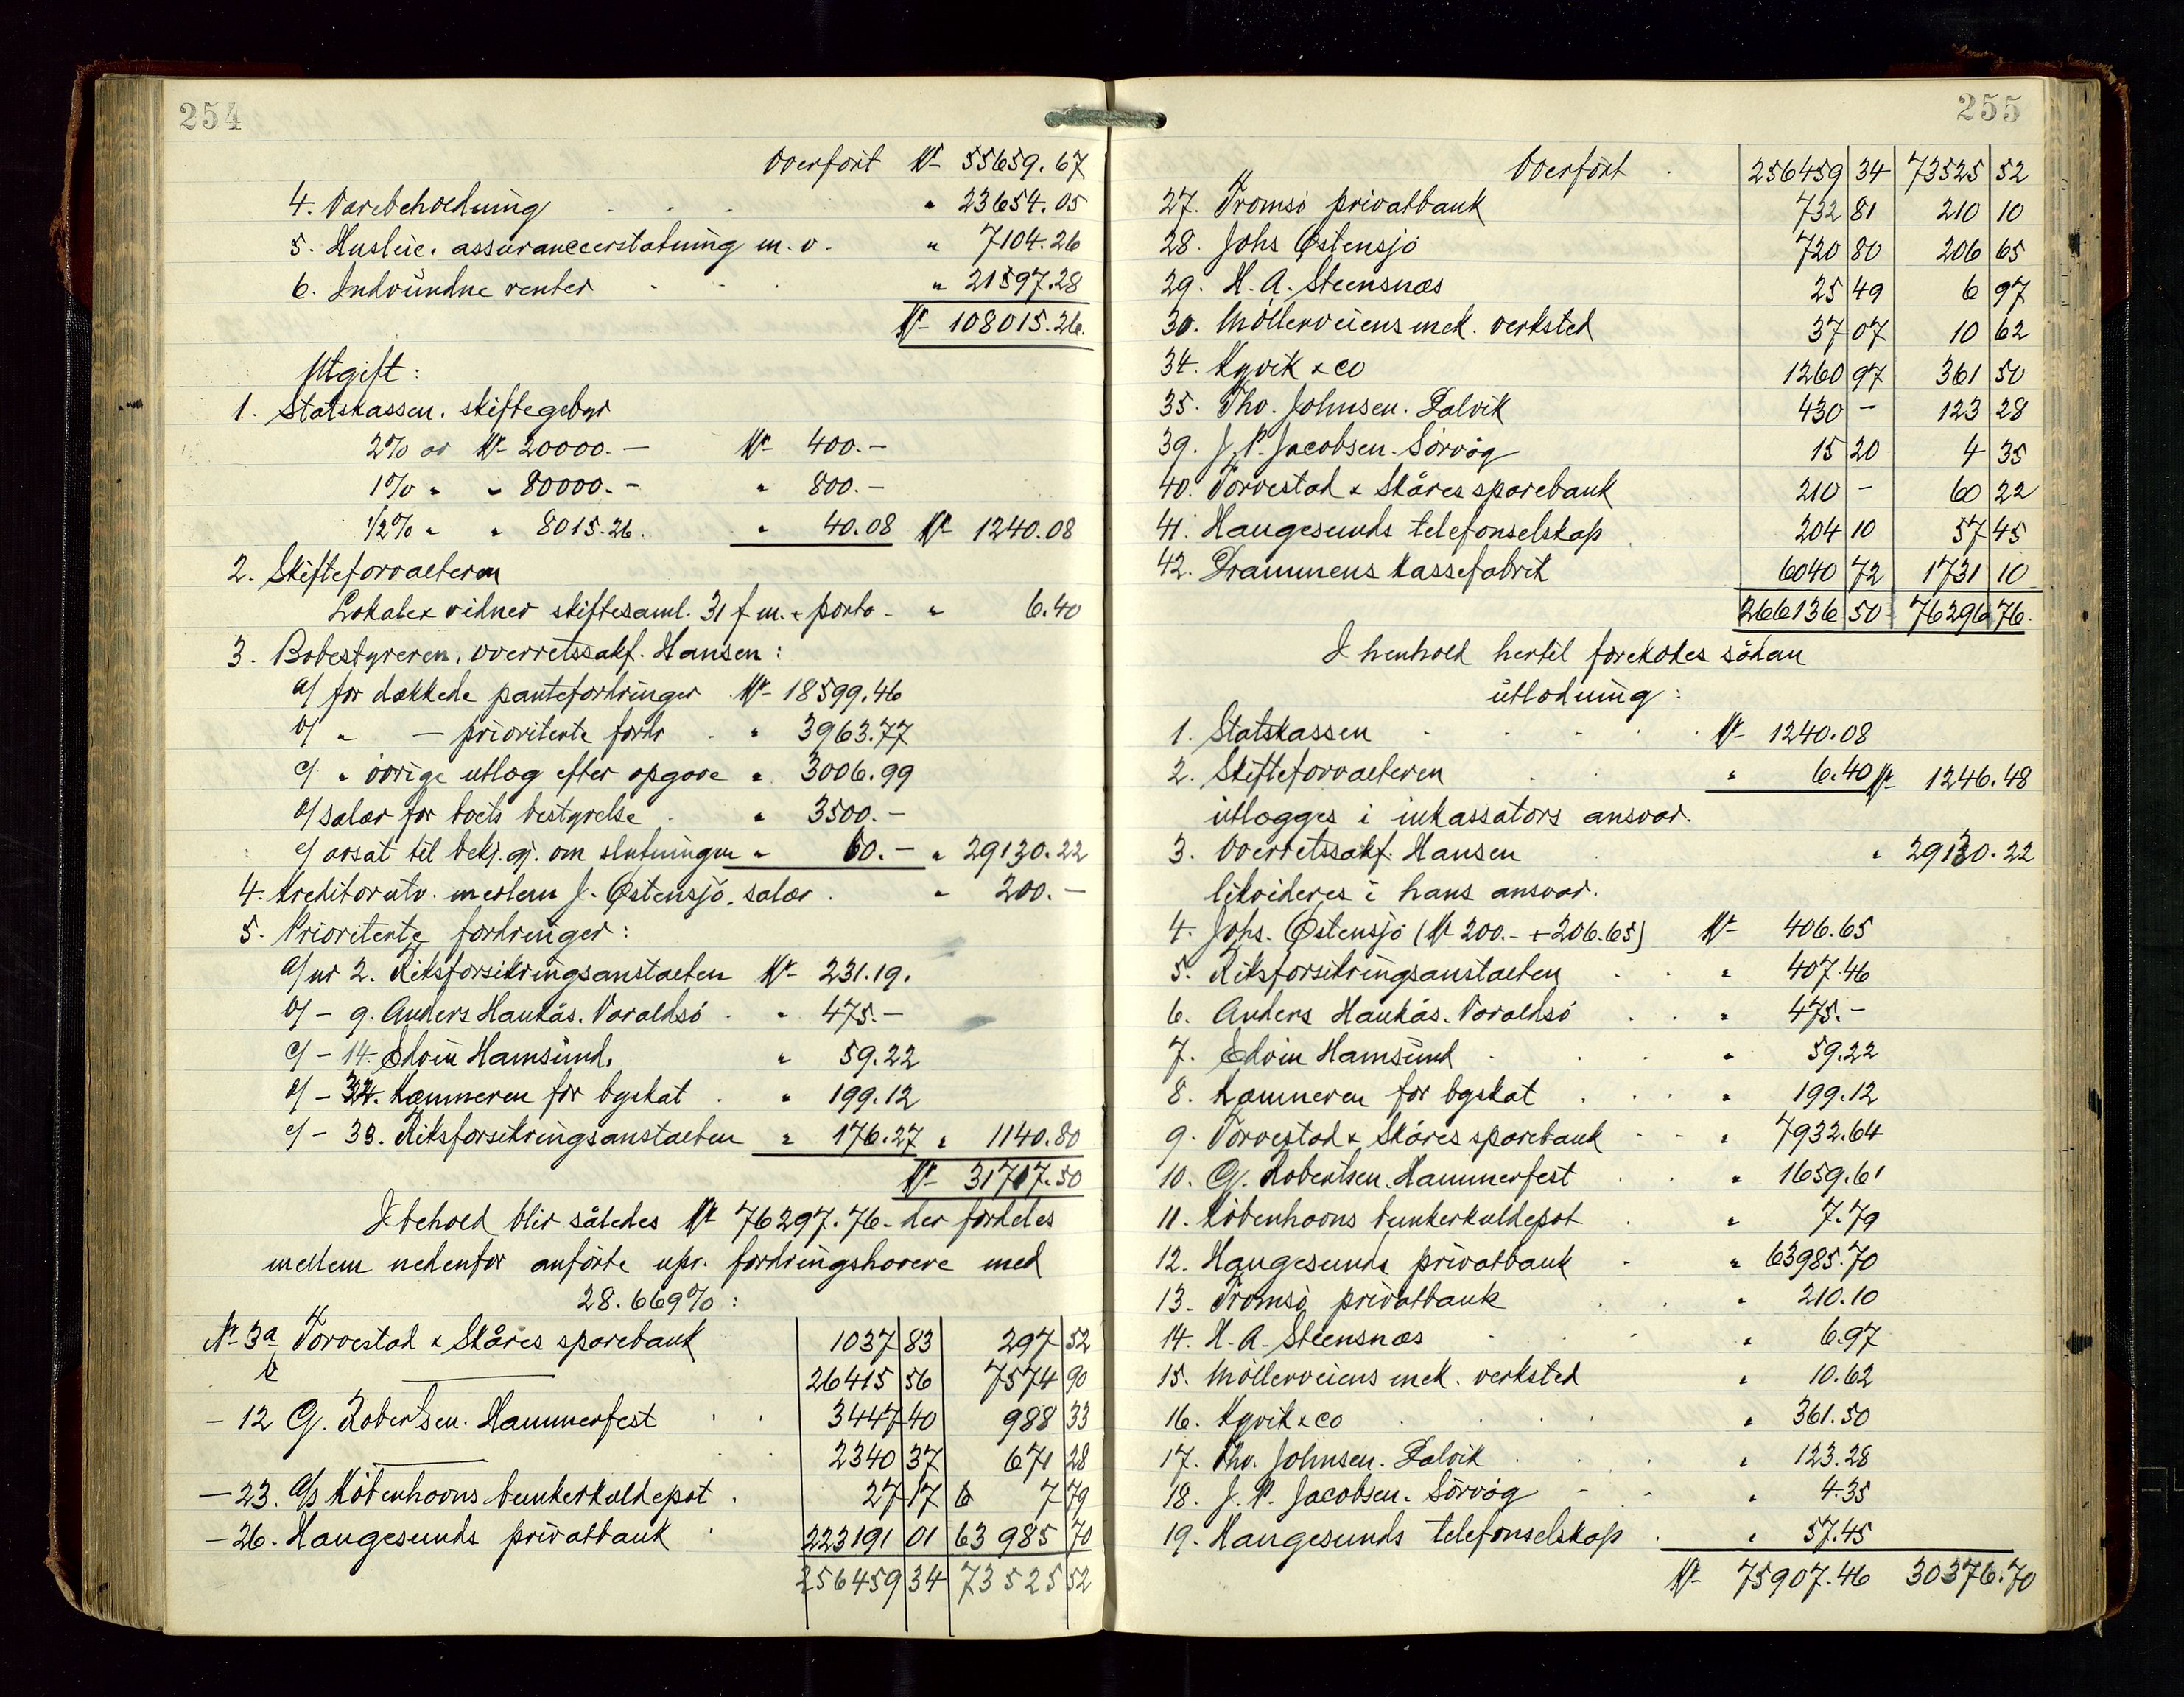 254
Overført Kr 55659.67
4. Varebeholdning . . . " 23654.05
5. Husleie, assuranceerstatning m.v. " 7104.26
6. Indvundne renter . . . " 21597.28
Kr 108015.26.
Utgift:
1. Statskassen, skiftegebyr
2% av Kr 20000.- Kr 400.-
1% " " 80000.- " 800.-
1/2% " " 8015.26. " 40.08 Kr 1240.08
2. Skifteforvalteren
Lokale & vidner skiftesaml. 31 f.m. & porto - " 6.40
3. Bobestyreren, overretssakf. Hansen:
a/ for dækkede pantefordringer Kr 18599.46
b/ " — prioriterte fordr . " 3963.77
c/ " øvrige utlæg efter opgave " 3006.99
d/ salær for boets bestyrelse . " 3500.-
e/ avsat til bekj.gj. om slutningen " 60.- " 29130.22
4. Kreditorutv. medlem J. Østensjø, salær . " 200.-
5. Prioriterte fordringer:
a/ nr 2. Riksforsikringsanstalten Kr 231.19.
b/ - 9. Anders Haukås. Varaldsø . " 475.-
c/ - 14. Edvin Hamsund. " 59.22
d/ - 32. Kæmneren for byskat . " 199.12
e/ - 33. Riksforsikringsanstalten " 176.27 " 1140.80
Kr 31717.50
I behold blir således Kr 76297.76 - der fordeles
mellem nedenfor anførte upr. fordringshavere med
28.669%:
Nr 3a Torvestad & Skåres sparebank 1037 83 297 52
b ——— 26415 56 7574 90
- 12 G. Robertsen. Hammerfest . . 3447 40 988 33
——— . . 2340 37 671 28
- 23. A/S Københavns bunkerkuldepot . 27 17 6 7 79
- 26. Haugesunds privatbank . 223191 01 63985 70
256459 34 73525 52
255
Overført . 256459 34 73525 52
27. Tromsø privatbank 732 81 210 10
28. Johs Østensjø 720 80 206 65
29. H. A. Steensnæs 25 49 6 97
30. Møllerveiens mek. verksted 37 07 10 62
34. Kyvik & co 1260 97 361 50
35. Thv. Johnsen. Dalvik 430 - 123 28
39. J. P. Jacobsen. Sørvåg 15 20 4 35
40. Torvestad & Skåres sparebank 210 - 60 22
41. Haugesunds telefonselskap 204 10 57 45
42. Drammens kassefabrik 6040 72 1731 10
266136 50 76296 76.
I henhold hertil foretokes sådan
utlodning:
1. Statskassen . . . . Kr 1240.08
2. Skifteforvalteren . . " 6.40 Kr 1246.48
utlægges i inkassators ansvar.
3. Overretssakf. Hansen . " 29130.22
likvideres i hans ansvar.
4. Johs. Østensjø (Kr 200.- + 206.65) Kr 406.65
5. Riksforsikringsanstalten . . " 407.46
6. Anders Haukås. Varaldsø . . " 475.-
7. Edvin Hamsund . . . " 59.22
8. Kæmneren for byskat . . . " 199.12
9. Torvestad & Skåres sparebank - - " 7932.64
10. G. Robertsen. Hammerfest . . " 1659.61
11. Københavns bunkerkuldepot . " 7.79
12. Haugesunds privatbank - " 63985.70
13. Tromsø privatbank . . " 210.10
14. H. A. Steensnæs . . " 6.97
15. Møllerveiens mek. verksted " 10.62
16. Kyvik & co . . . . " 361.50
17. Thv. Johnsen. Dalvik . . . " 123.28
18. J. P. Jacobsen. Sørvåg - - " 4.35
19. Haugesunds telefonselskap . " 57.45
Kr 75907.46 30376.70